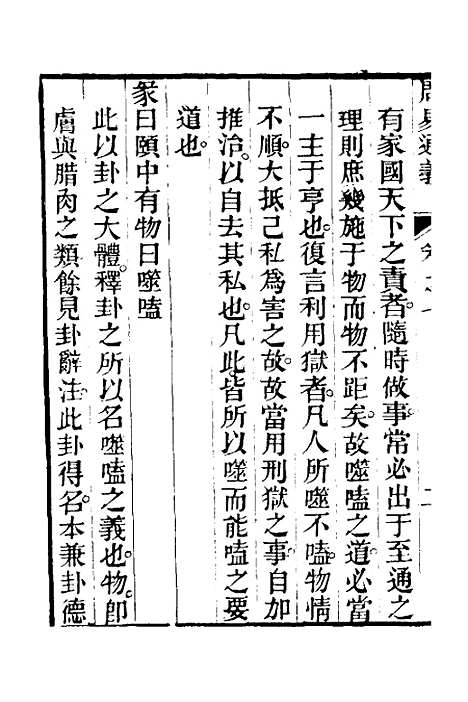 周易通義 卷之七 二
有家國天下之責者。隨時做事。常必出于至通之
理則庶幾施于物而物不距矣。故噬嗑之道。必當
一主于亨也。復言利用獄者。凡人所噬不嗑。物情
不順。大抵己私爲害之故。故當用刑獄之事。自加
推治。以自去其私也。凡此。皆所以噬而能嗑之要
道也。
彖曰頤中有物曰噬嗑
此以卦之大體。釋卦之所以名噬嗑之義也。物卽
膚與腊肉之類。餘見卦辭注。此卦得名。本兼卦德